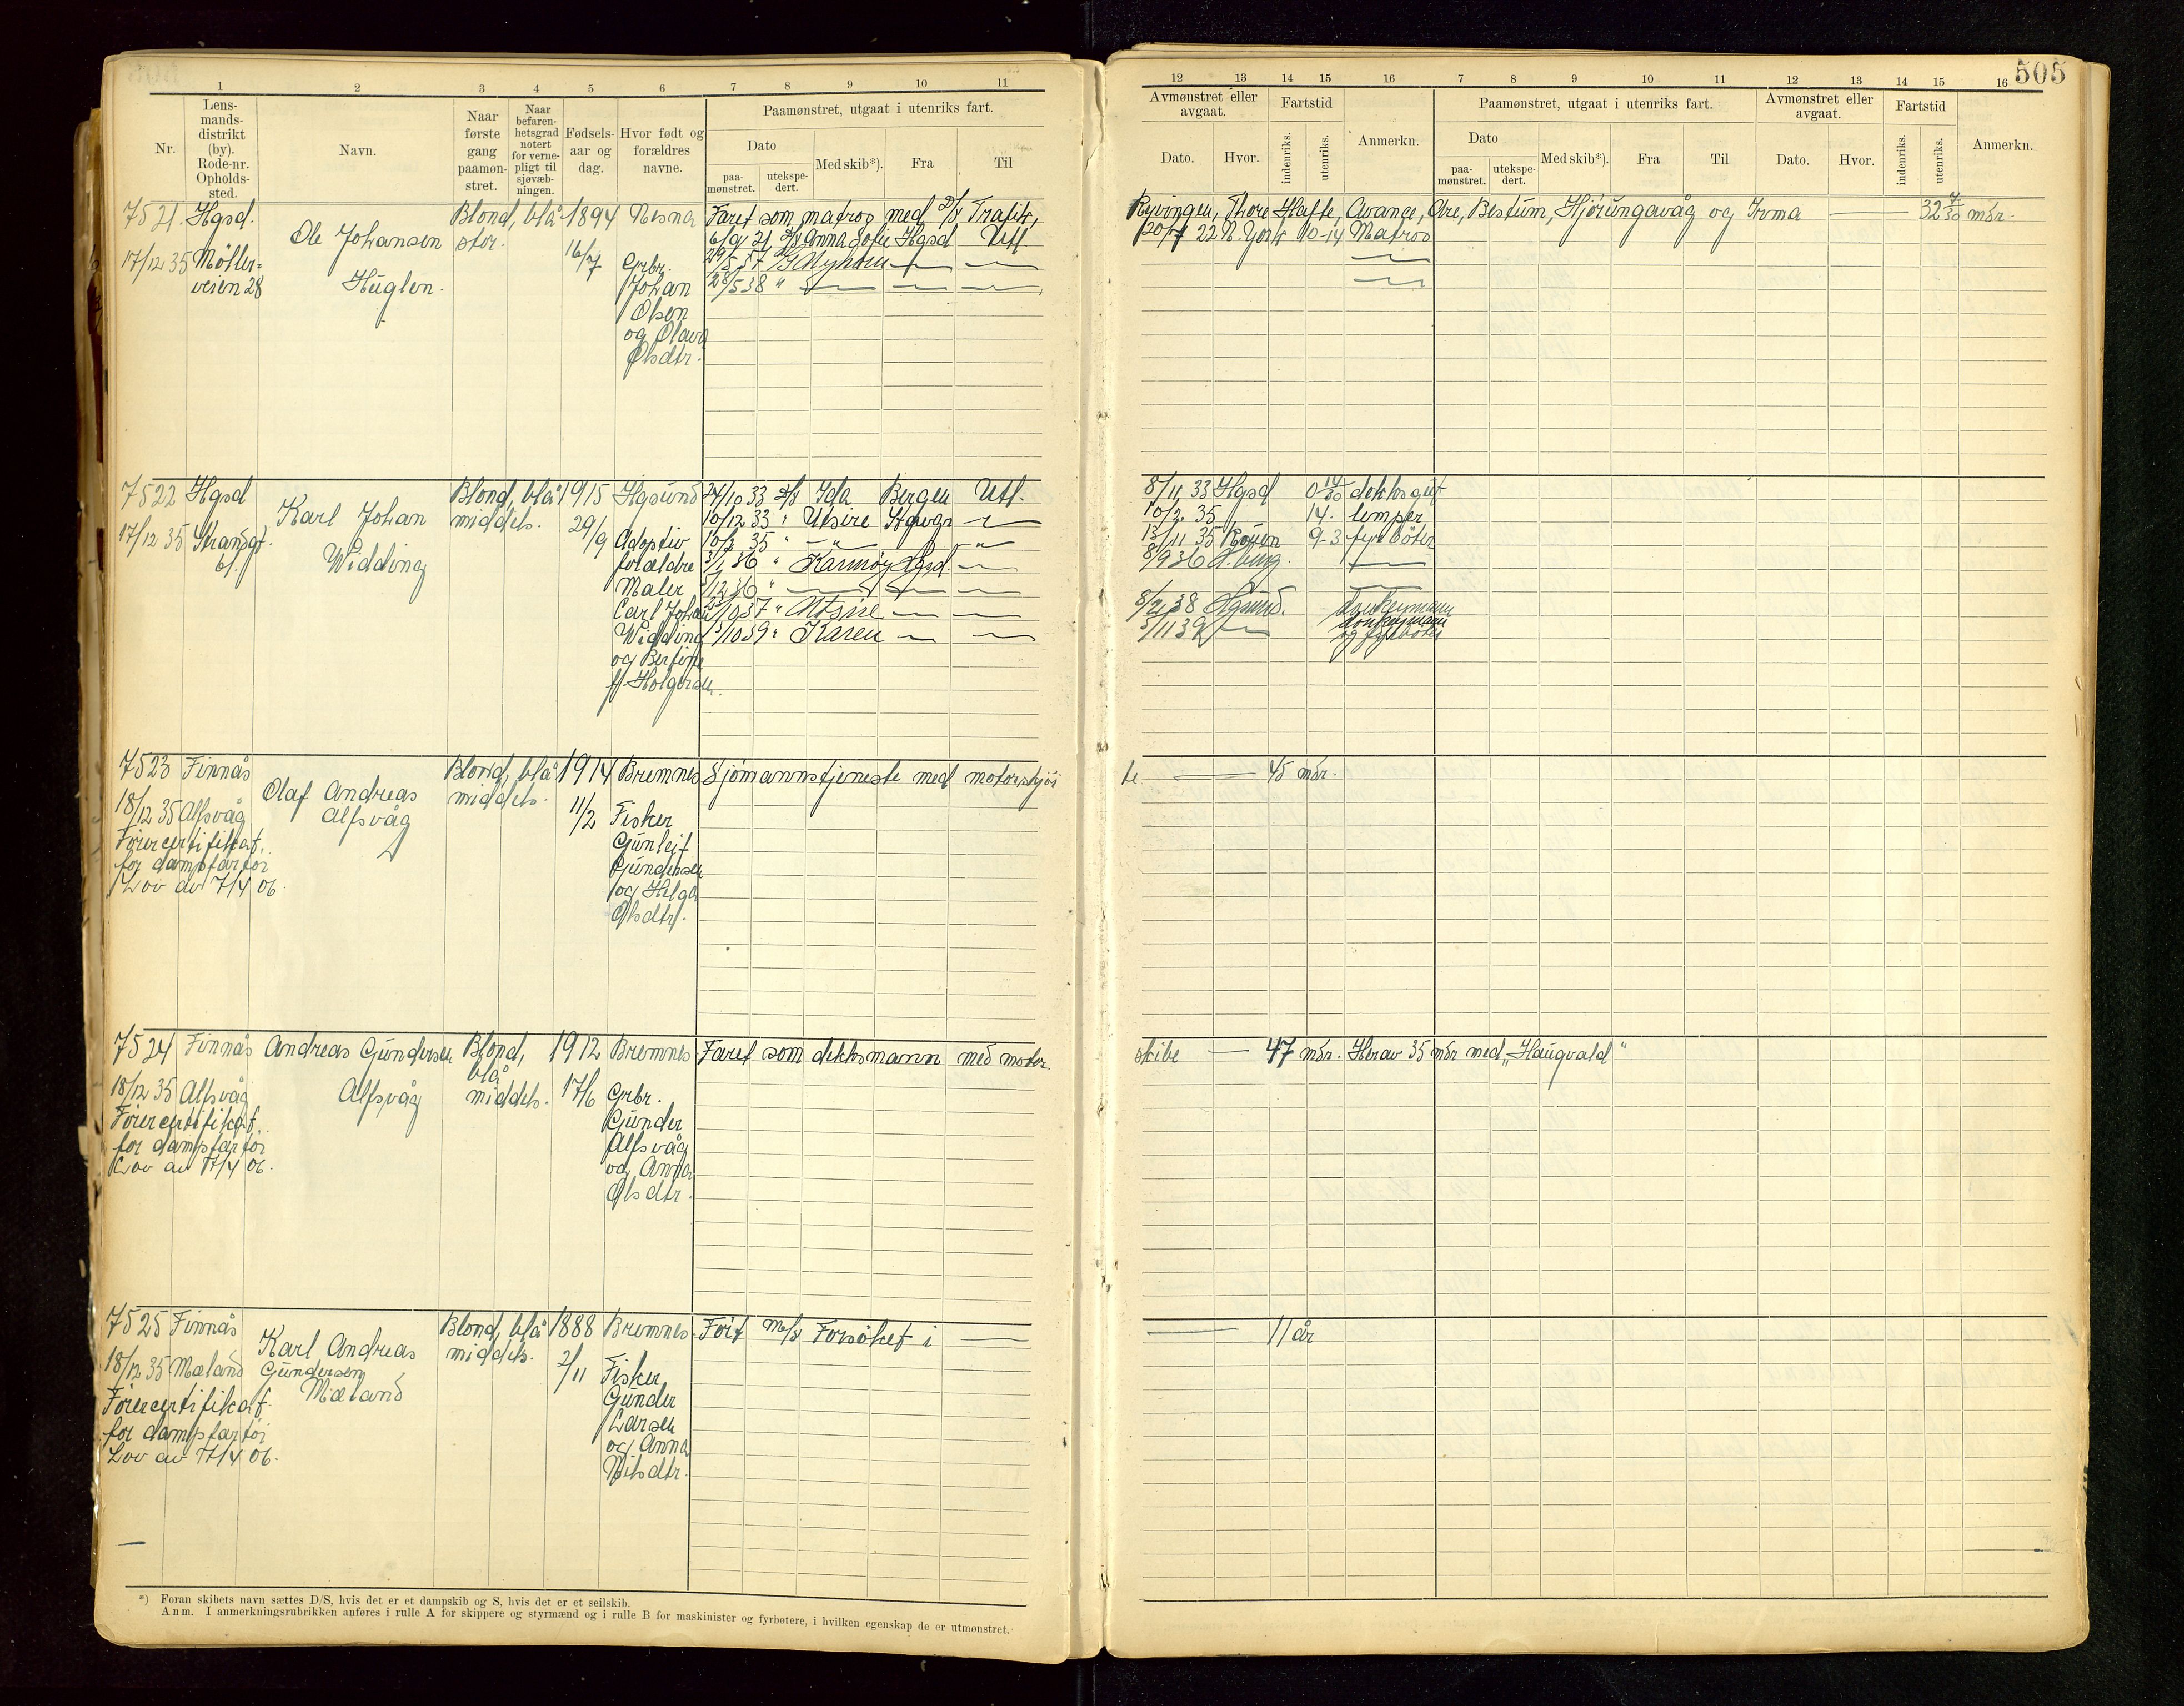 505
1 2 3 4 5 6 7 8 9 10 11
12 13 14 15 16 7 8 9 10 11 12 13 14 15 16
Nr.
Lens-
mands-
distrikt
(by).
Rode-nr.
Opholds-
sted.
Navn.
Naar
første
gang
paamøn-
stret.
Naar
befaren-
hetsgrad
notert
for verne-
pligt til
sjøvæb-
ningen.
Fødsels-
aar og
dag.
Hvor født og
forældres
navne.
Paamønstret, utgaat i utenriks fart.
Dato
paa-
mønstret.
utekspe-
dert.
Med skib*).
Fra
Til
Avmønstret eller
avgaat.
Dato.
Hvor.
Fartstid
indenriks.
utenriks.
Anmerkn.
Paamønstret, utgaat i utenriks fart.
Dato
paa-
mønstret.
utekspe-
dert.
Med skib*).
Fra
Til
Avmønstret eller
avgaat.
Dato.
Hvor.
Fartstid
indenriks.
utenriks.
Anmerkn.
7521 Hgsd.
17/12 35 Möller-
veien 28
Ole Johansen
Huglen.
Blond, blå
stor.
1894
16/7
Nesna
Grbr.
Johan
Olsen
og Olava
Olsdtr.
Faret som matros med D/S Trafik,
6/9 21 Anna Sofie Hgsd Utl.
28/5 38 " — — —
Ryvingen, Thore Hafte, Avance, Are, Bestum, Hjörungavåg og Irma — 32 mdr.
20/7 22 N. York 10-14 Matros
7522 Hgsd
17/12 35 Strandgt.
61.
Karl Johan
Widding
Blond, blå
middels.
1915
29/9
Hgsund
Adoptiv
forældre
Maler
Carl Johan
Widding
og Bertine
f. Holgersen.
24/10 33 D/S Ida Bergen Utl.
10/12 33 " Utsire Stavgr —
10/2 35 " — " — "
3/1 36 " Karmøy Hgsd. —
/12 36 " — — —
/10 37 " Utsire — —
3/10 39 " Karen — —
8/11 33 Hgsd 0 14/30 dekksgut
10/2 35 14. lemper
13/11 35 Rouen 9-3 fyrböter
8/9 36 —
8/2 38 Hgsund. donkeymann
3/11 39 — donkeymann
og fyrböter
7523 Finnås
18/12 35 Alfsvåg
Förercertifikat
for dampfartöi
Lov av 7/4 06.
Olaf Andreas
Alfsvåg
Blond, blå
middels.
1914
11/2
Bremnes
Fisker
Gunleif
Gundersen
og Helga
Olsdtr.
Sjömannstjeneste med motorskjöi
te — 45 mdr.
7524 Finnås
18/12 35 Alfsvåg
Förercertifikat
for dampfartöi
Lov av 7/4 06.
Andreas Gundersen
Alfsvåg
Blond,
blå
middels.
1912
17/6
Bremnes
Grbr.
Gunder
Alfsvåg
og Anna
Olsdtr.
Faret som dekksmann med motor
skibe — 47 mdr. Herav 35 mdr med „Haugvald"
7525 Finnås
18/12 35 Mæland
Förercertifikat
for dampfartöi
Lov av 7/4 06.
Karl Andreas
Gundersen
Mæland
Blond, blå
middels.
1888
2/11
Bremnes
Fisker
Gunder
Larsen
og Anna
Nilsdtr.
Fört M/S Forsöket i —
— 11 år
*) Foran skibets navn sættes D/S, hvis det er et dampskib og S, hvis det er et seilskib.
Anm. I anmerkningsrubrikken anføres i rulle A for skippere og styrmænd og i rulle B for maskinister og fyrbøtere, i hvilken egenskap de er utmønstret.